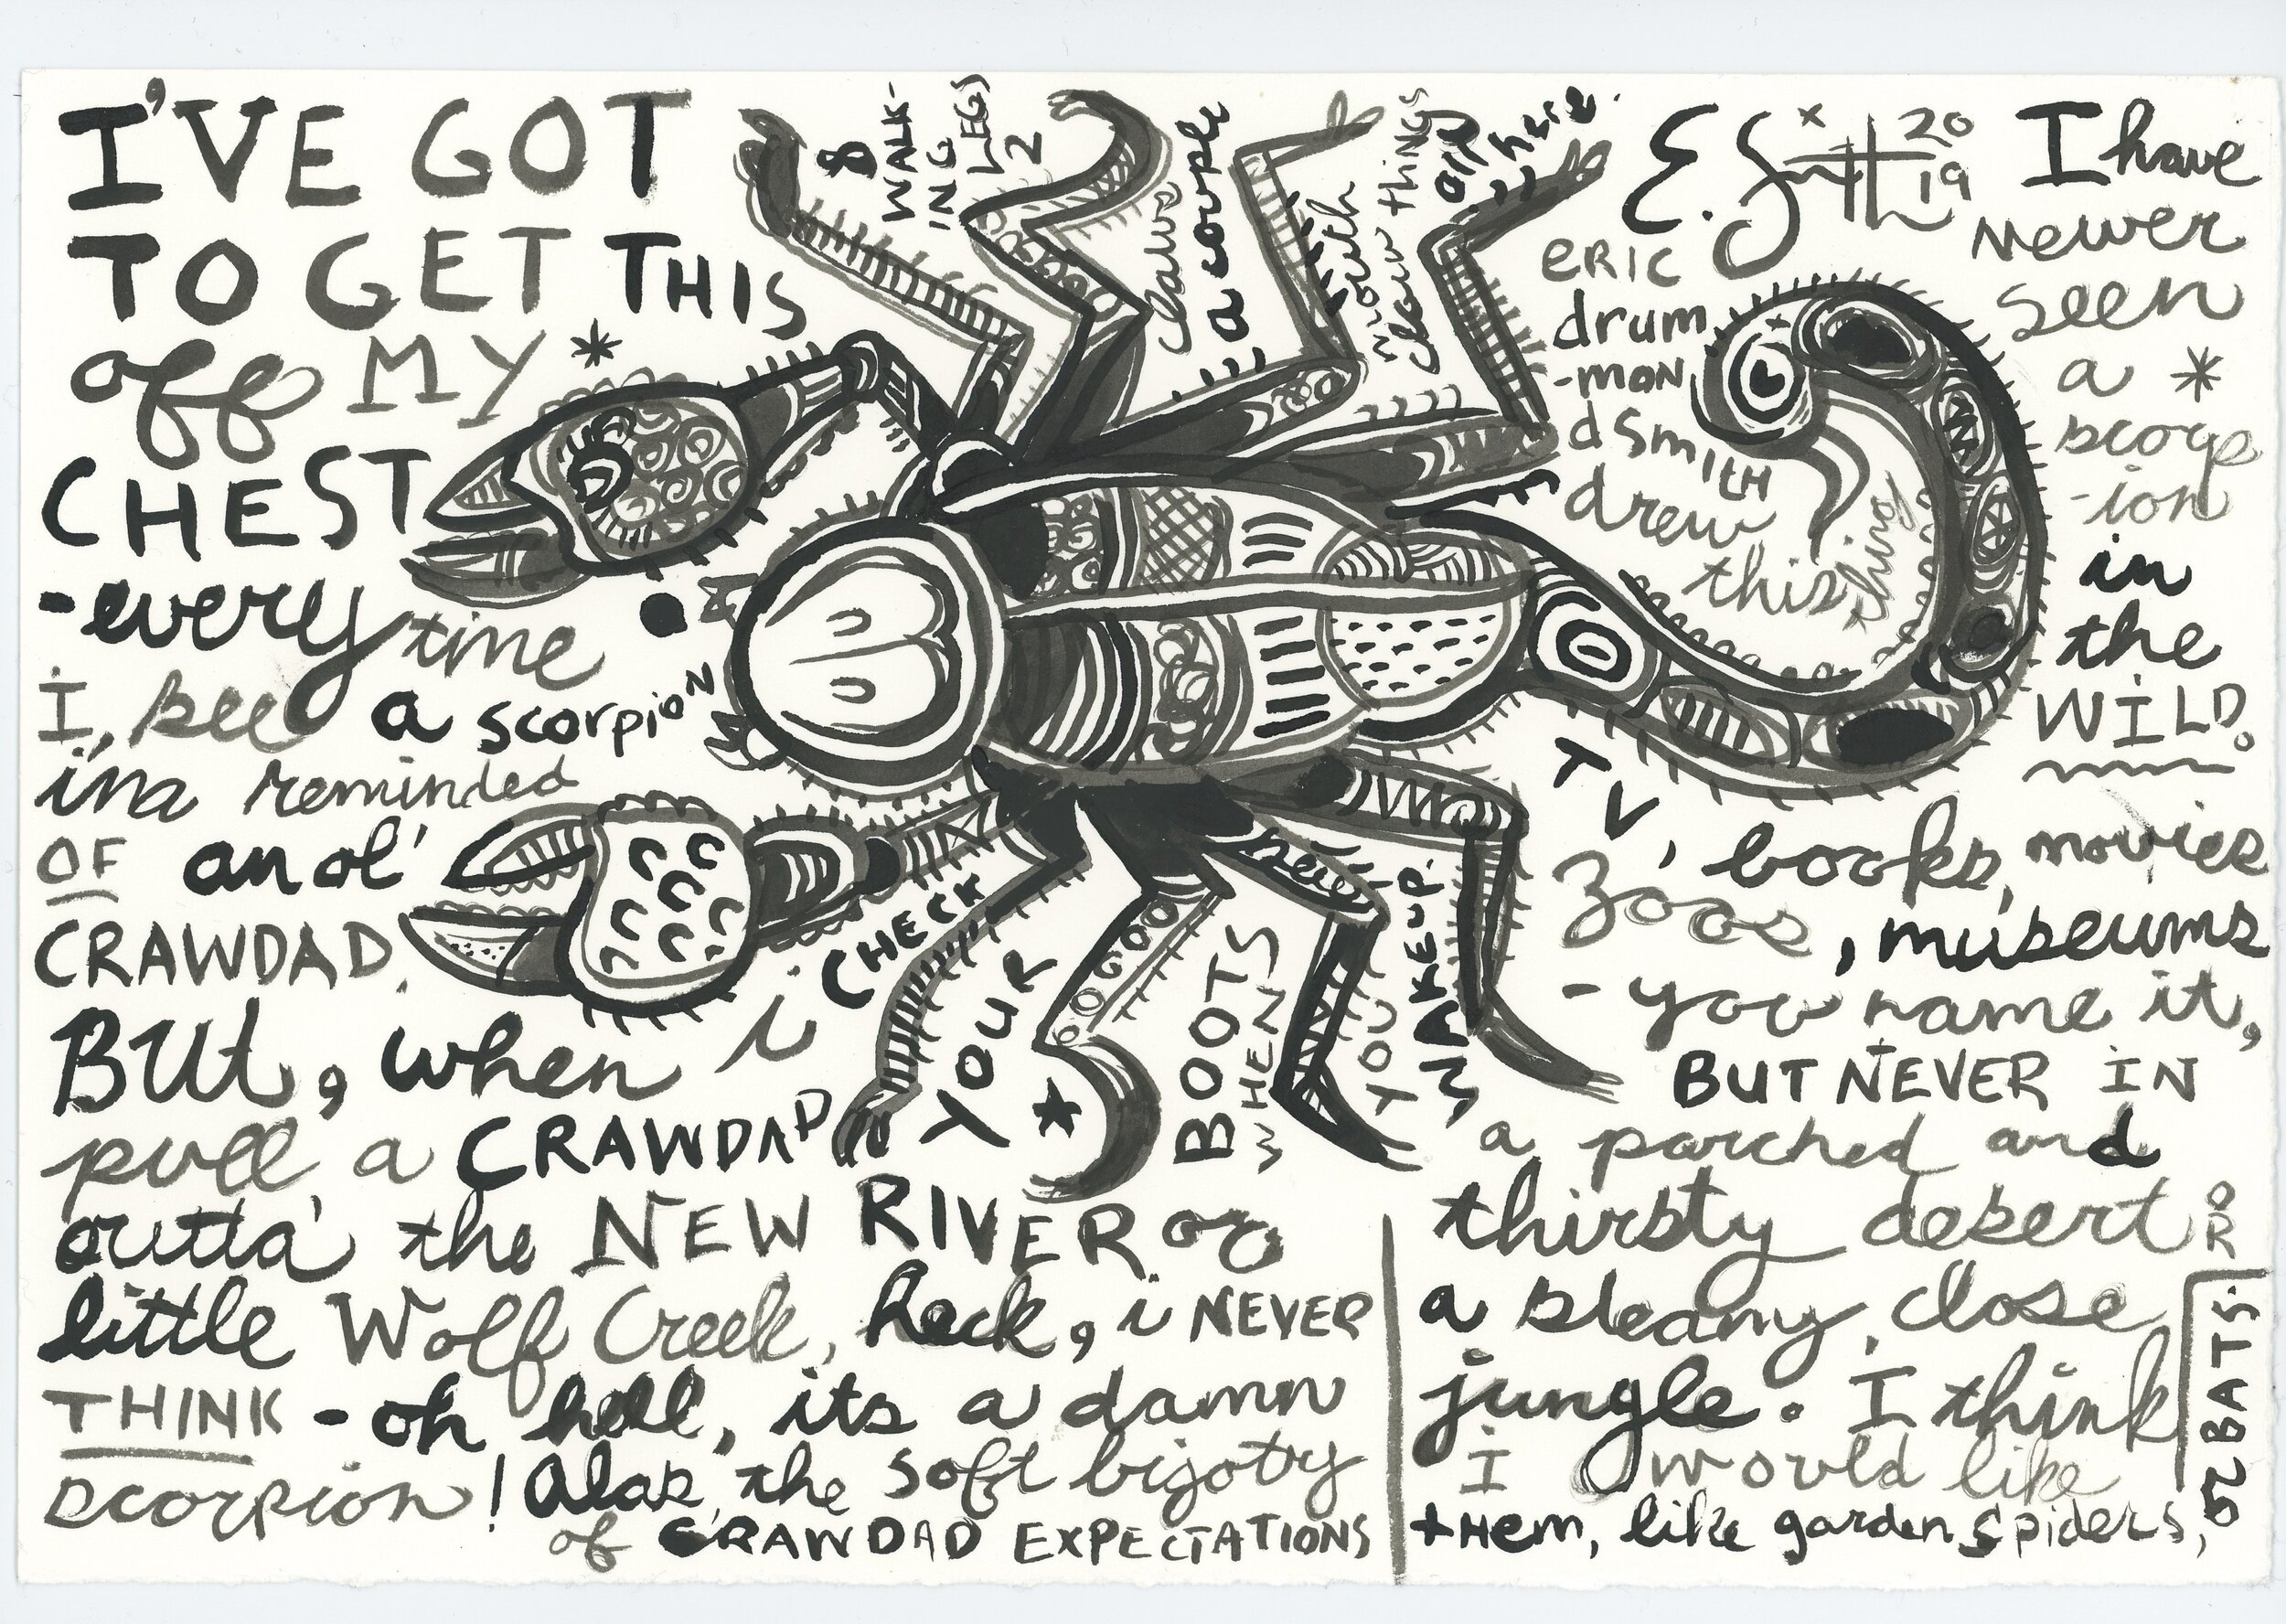 I'VE GOT
TO GET THIS
off MY
CHEST
-every time
I see a scorpion
i'm reminded
OF an ol'
CRAWDAD.
But, when i
pull a CRAWDAD
outta' the NEW RIVER or
little Wolf Creek, heck, i NEVER
THINK - oh hell, its a damn
scorpion! Alas, the soft bigotry
of CRAWDAD EXPECTATIONS
8
WALK-
ING
LEGS
2
claws
a couple
mouth
claw things
CHECK
YOUR
BOOTS
WHEN
YOU
WAKE UP.
E. Smith
20
19
eric
drum
-mon
d Smith
drew
this thing
I have
never
seen
a
scorp
-ion
in
the
WILD.
TV, books, movies
zoos, museums
- you name it,
BUT NEVER IN
a parched and
thirsty desert OR
a steamy, close
jungle. I think
I would like
them, like garden spiders,
BATS.